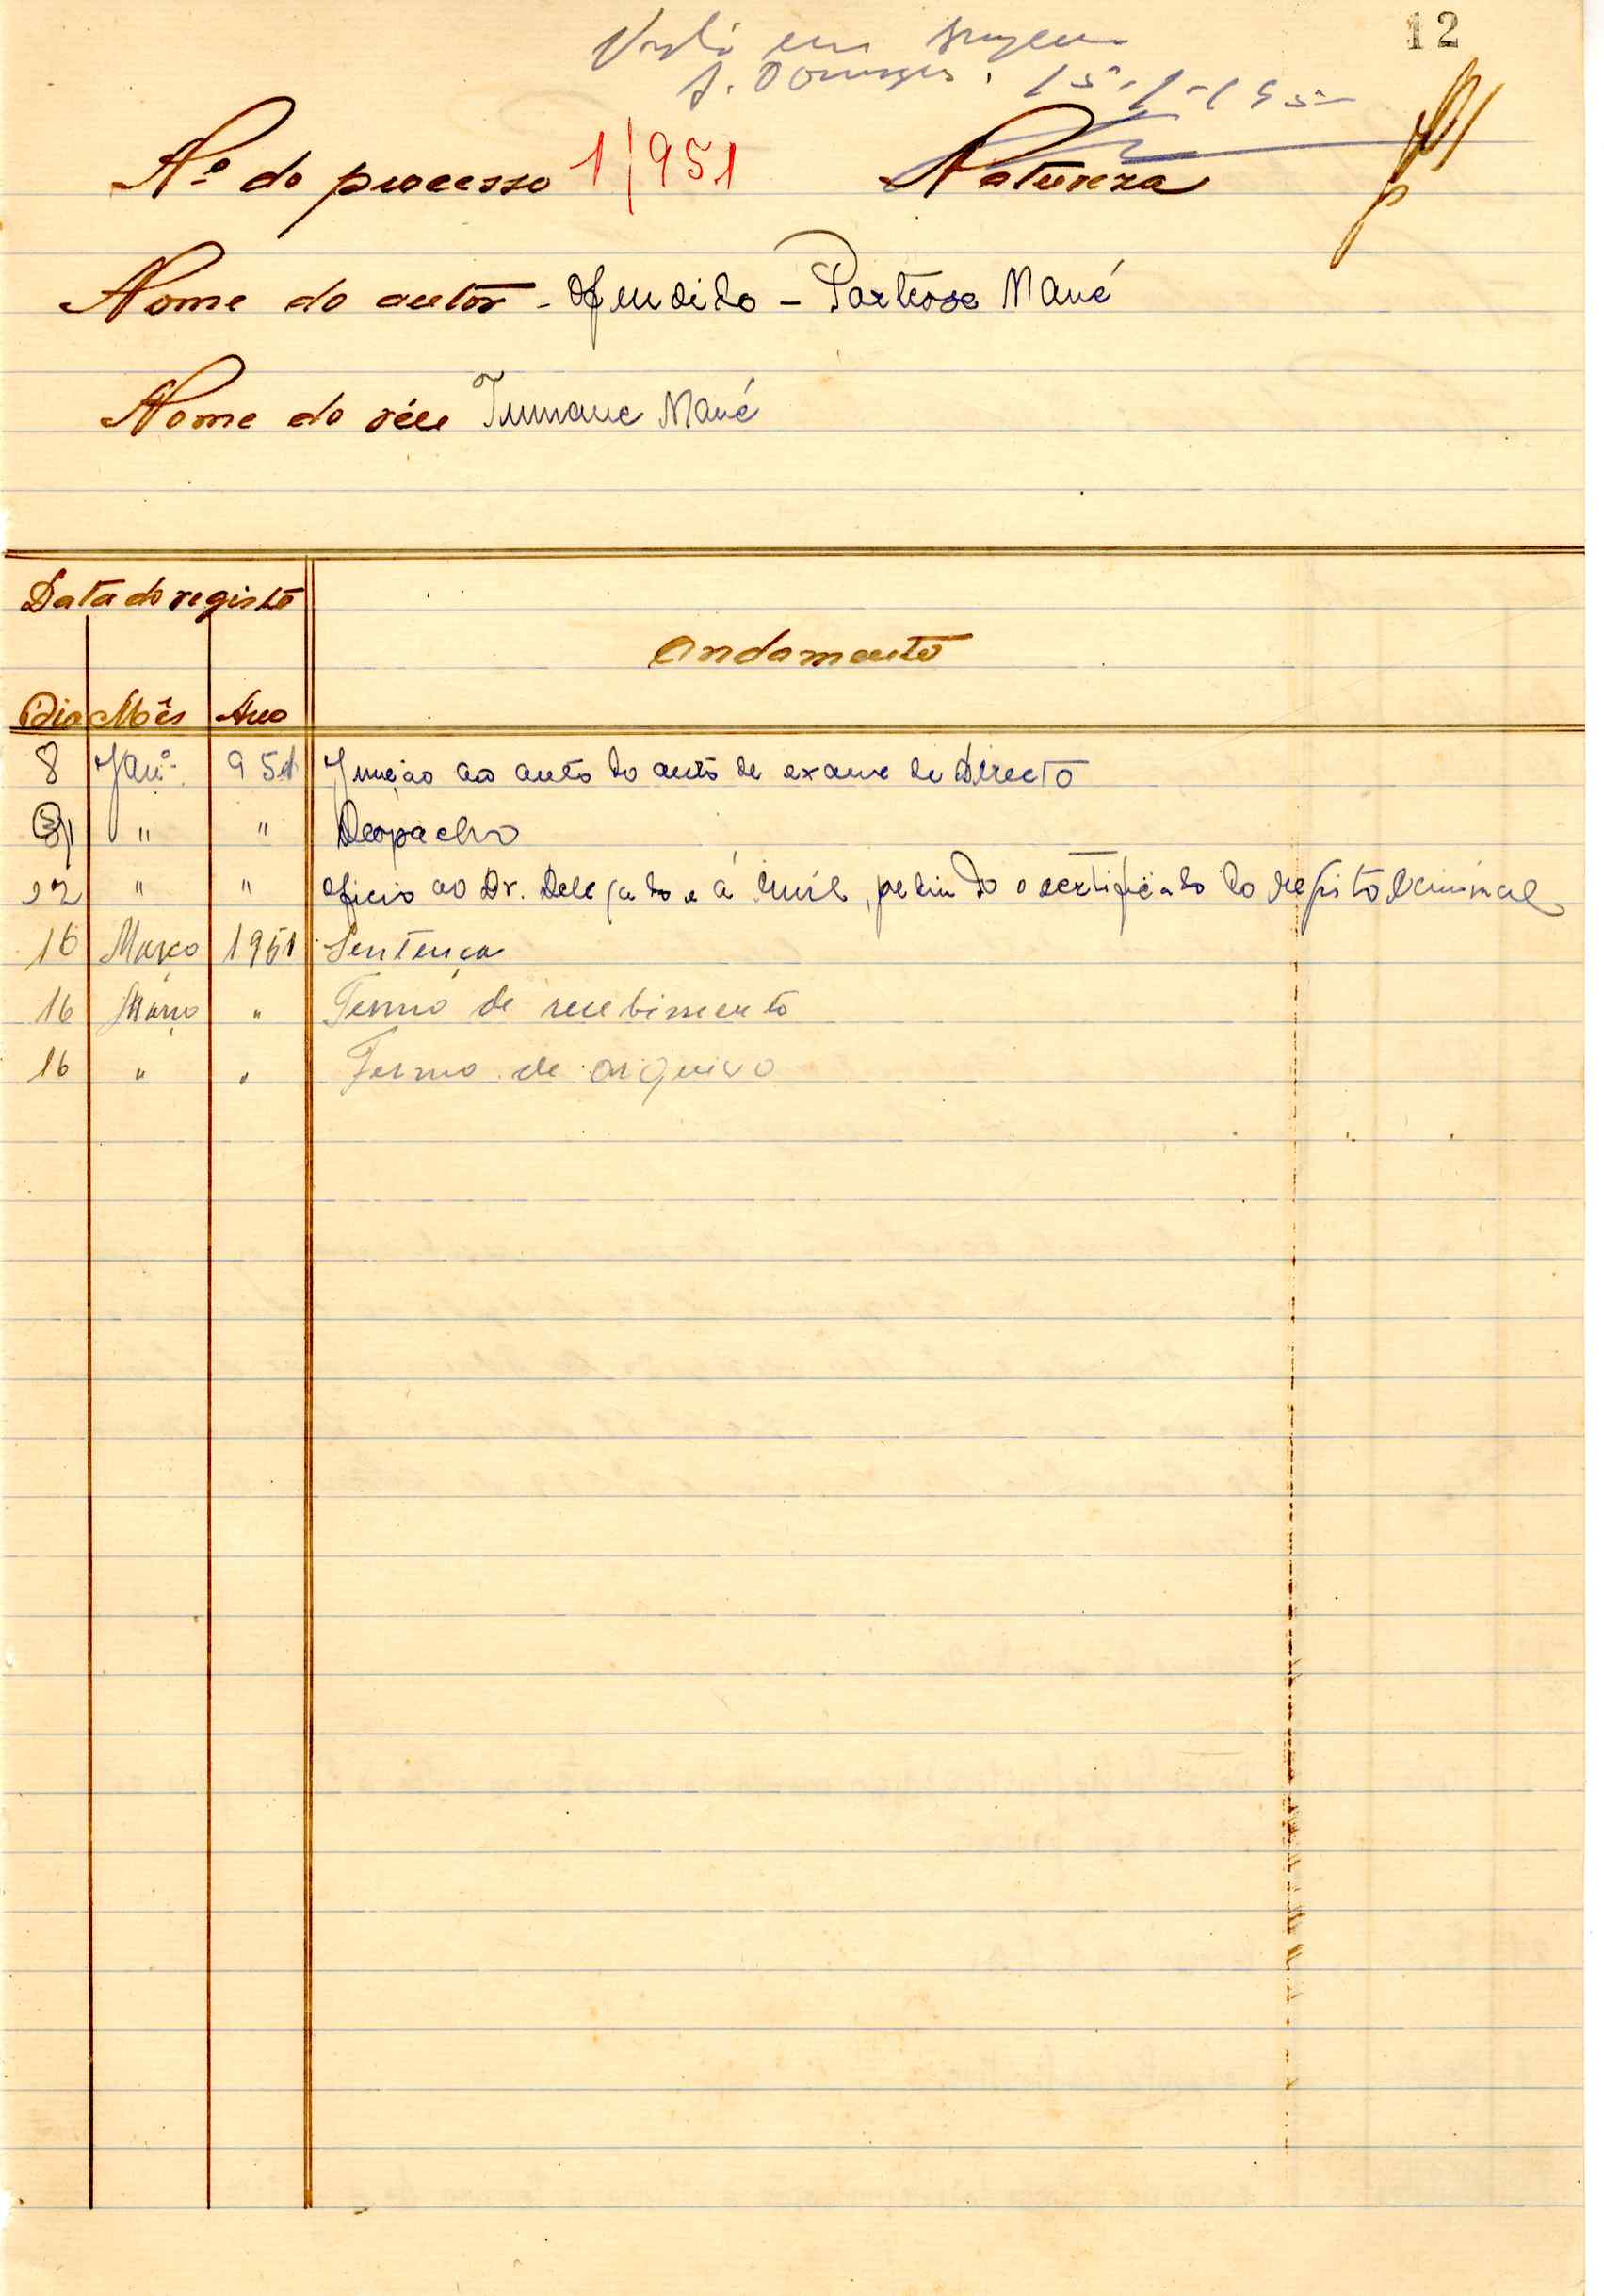 12
em
S. Domingos. 15-1-195
Nº do processo 1/951 Natureza
Nome do autor - Ofendido - Mané
Nome do réu Tumane Mané
Data do registo
Andamento
Dia Mês Ano
8 Janº 951 Junção ao auto do auto de exame de directo
" " Despacho
12 " " Oficio ao Dr. Delegado e á pedindo o certificado do registo Criminal
16 Março 1951 Sentença
16 Março " Termo de recebimento
16 " " Termo de arquivo